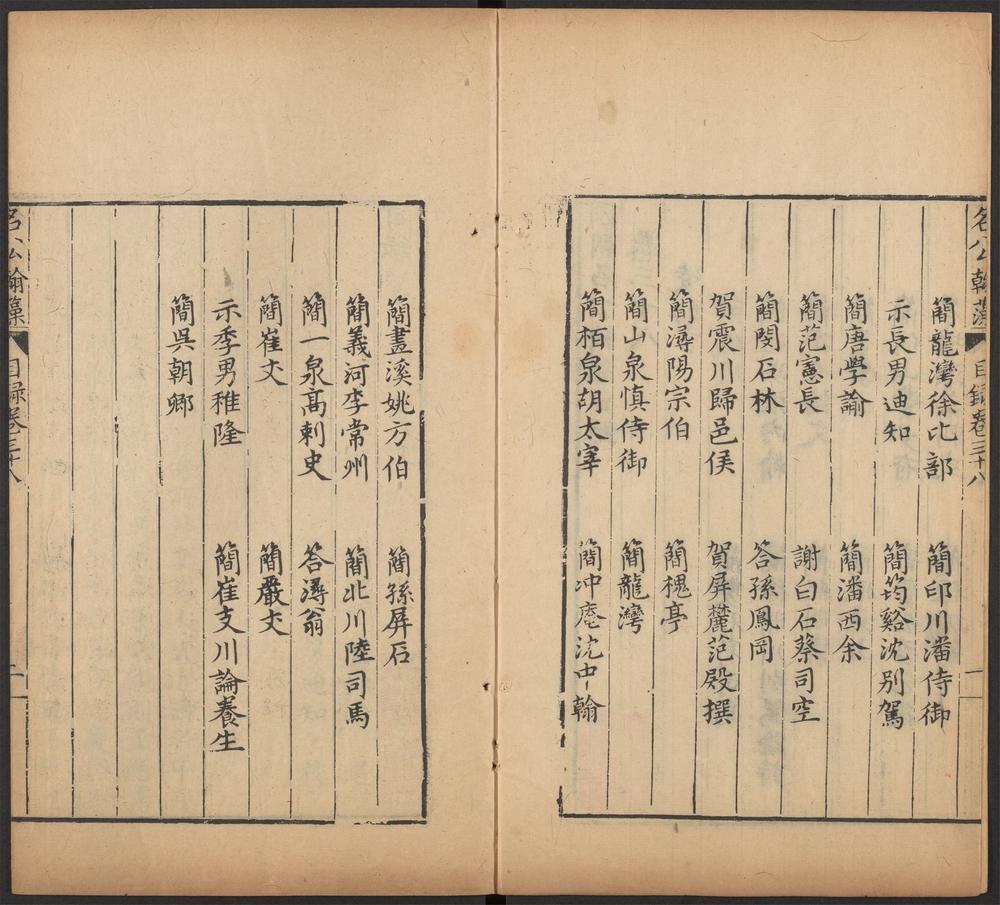 名公翰藻 目録卷三十八 一
簡龍灣徐比部 簡印川潘侍御
示長男迪知 簡筠谿沈別駕
簡唐學諭 簡潘西余
簡范憲長 謝白石蔡司空
簡閔石林 答孫鳳岡
賀震川歸邑侯 賀屏麓范殿撰
簡潯陽宗伯 簡槐亭
簡山泉慎侍御 簡龍灣
簡栢泉胡太宰 簡冲庵沈中翰
簡畫溪姚方伯 簡孫屏石
簡義河李常州 簡北川陸司馬
簡一泉高刺史 答潯翁
簡崔丈 簡嚴丈
示季男稚隆 簡崔支川論養生
簡吳朝卿
名公翰藻 目録卷三十八